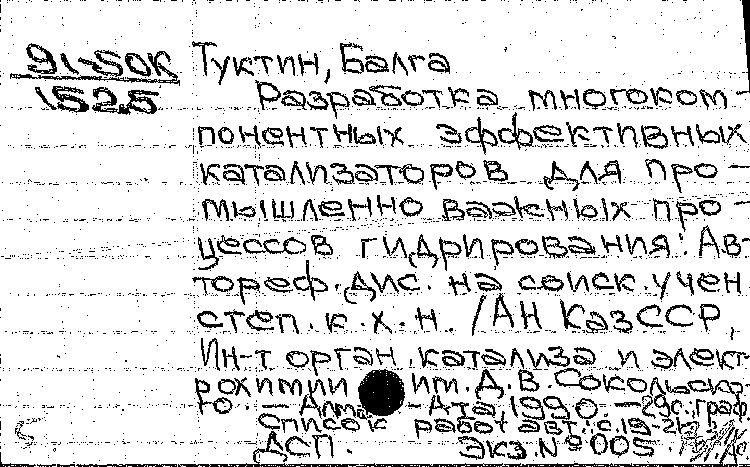 91-50К
1525
Туктин, Балга
Разработка многоком-
понентных эффективных
катализаторов для про-
мышленно важных про-
цессов гидрирования: Ав-
тореф. дис. на соиск. учен.
степ. к. х. н. / АН КазССР,
Ин-т орган. катализа и элект
рохимии им. Д. В. Сокольско
го. — Алма-Ата, 1990. — 29с. граф
Список работ авт.: с. 19-21
ДСП. Экз. № 005.